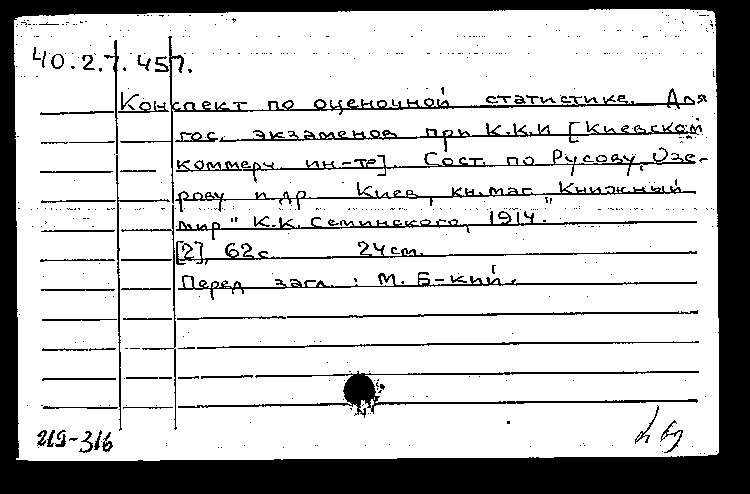 40.2.7.457.
Конспект по оценочной статистике. Для
гос. экзаменов при К.К.И [Киевском
коммерч. ин-те]. Сост. по Русову, Озе-
рову и др. Киев, кн.маг. "Книжный
мир" К.К. Семинского, 1914.
[2], 62 с. 24 см.
Перед загл.: М. Б-кий.
219-316